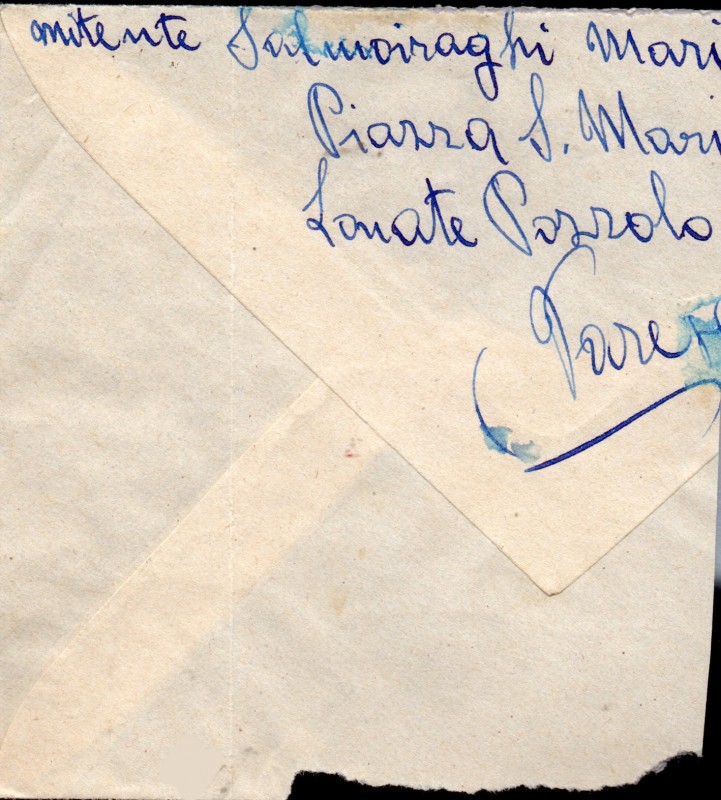 mitente Salmoiraghi Mari
Piazza S. Mari
Lonate Pozzolo
Varese